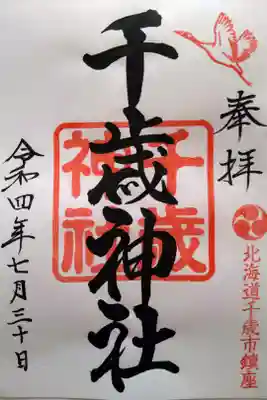 奉拝
北海道千歳市鎮座
千歳神社
千歳
神社
令和四年七月三十日